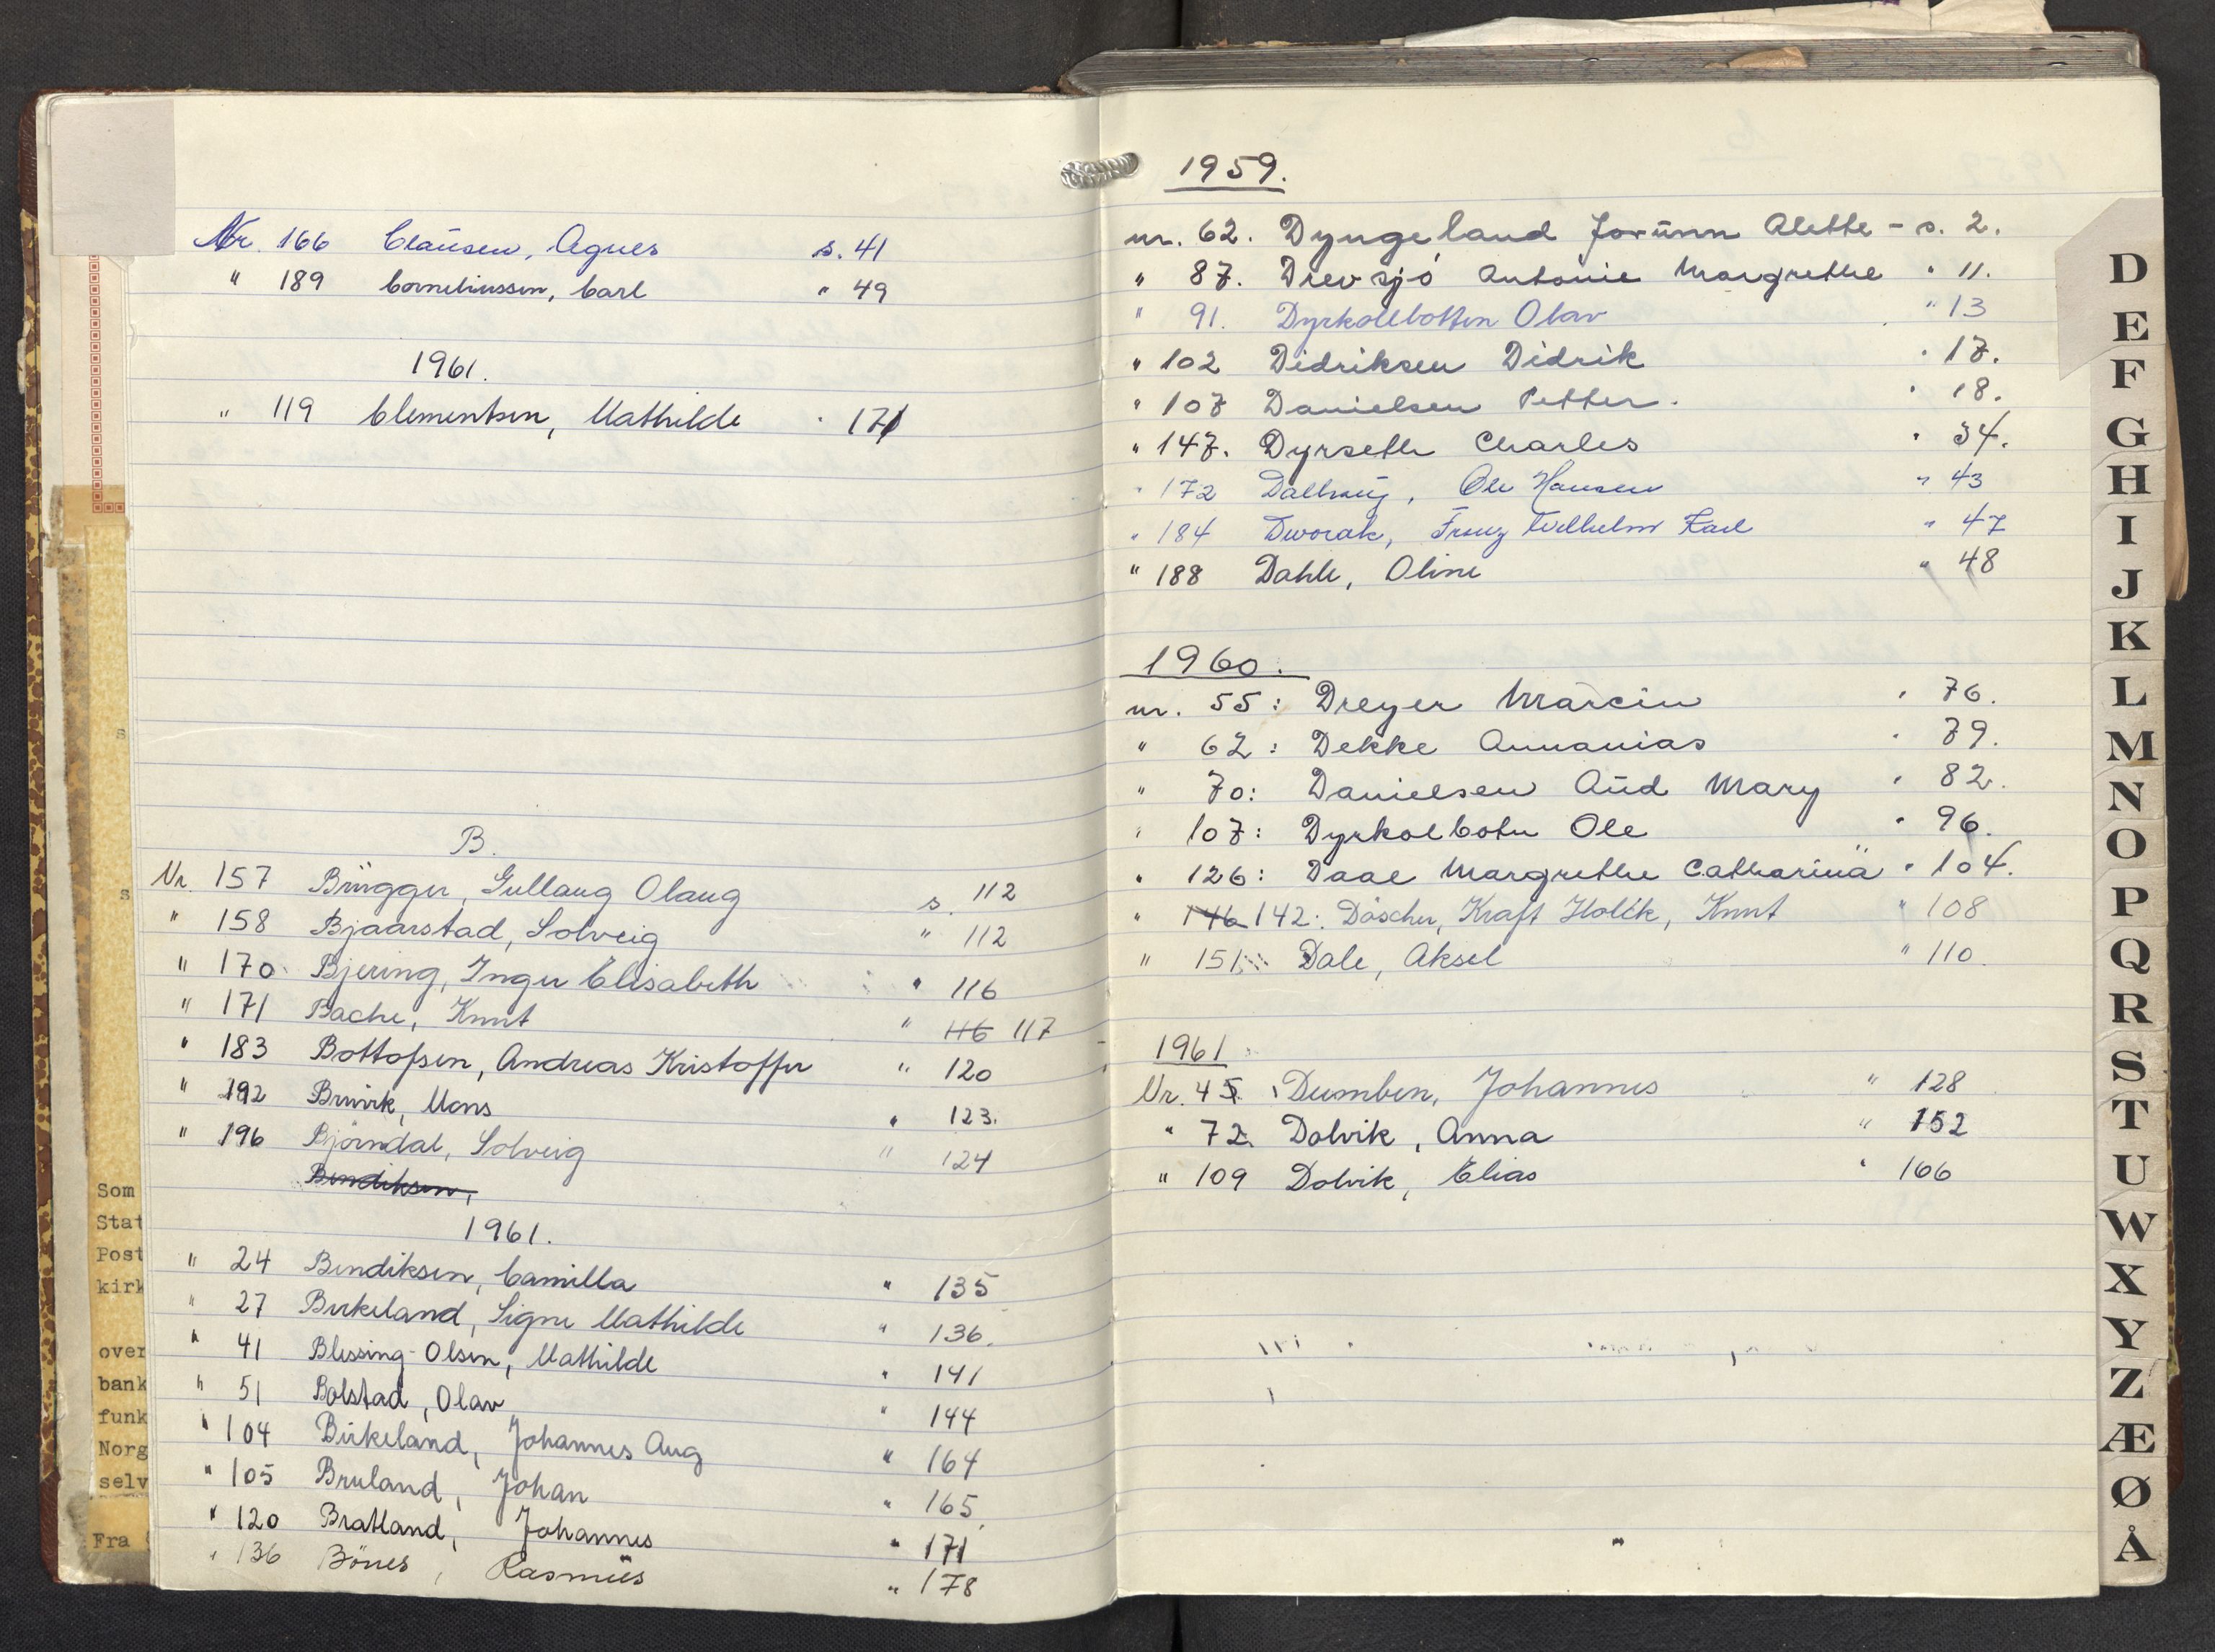 Nr. 166 Clausen, Agnes s. 41
" 189 Corneliussen, Carl " 49
1961.
" 119 Clementsen, Mathilde " 171
B.
Nr. 157 Brügger, Gullaug Olaug s. 112
" 158 Bjaarstad, Solveig " 112
" 170 Bjering, Inger Elisabeth " 116
" 171 Bache, Knut " 116 117
" 183 Bottolfsen, Andreas Kristoffer " 120
" 192 Bruvik, Mons " 123.
" 196 Bjørndal, Solveig " 124
Bendiksen,
1961.
" 24 Bendiksen, Camilla " 135
" 27 Birkeland, Signe Mathilde " 136.
" 41 Blessing-Olsen, Mathilde " 141
" 51 Bolstad, Olav " 144
" 104 Birkeland, Johannes Aug " 164
" 105 Bruland, Johan " 165.
" 120 Bratland, Johannes " 171
" 136 Bönes, Rasmus " 178
s
s
Som
Stat
Post
kirk
over
bank
funk
Norg
selv
Fra
1959.
nr. 62. Dyngeland Jorunn Alette - s. 2.
" 87. Drevsjö Antonie Margrethe " 11.
" 91. Dyrkollbotten Olav " 13
" 102 Didriksen Didrik " 17.
" 107 Danielsen Petter. " 18.
" 147. Dyrseth Charles " 34.
" 172 Dalhaug, Ole Hansen " 43
" 184 Dworak, Franz Wilhelm Karl " 47
" 188 Dahle, Oline " 48
1960.
nr. 55: Dreyer Marcin " 76.
" 62: Dekke Annanias " 79.
" 70: Danielsen Aud Mary " 82.
" 107: Dyrkolbotn Ole " 96.
" 126: Daae Margrethe Catharina " 104.
" 146 142: Döscher, Kraft Holck, Knut " 108
" 151: Dale, Aksel " 110.
1961
Nr. 45. Dumben, Johannes " 128
" 72. Dolvik, Anna " 152
" 109 Dolvik, Elias " 166
D
E
F
G
H
I
J
K
L
M
N
O
P
Q
R
S
T
U
W
X
Y
Z
Æ
Ø
Å